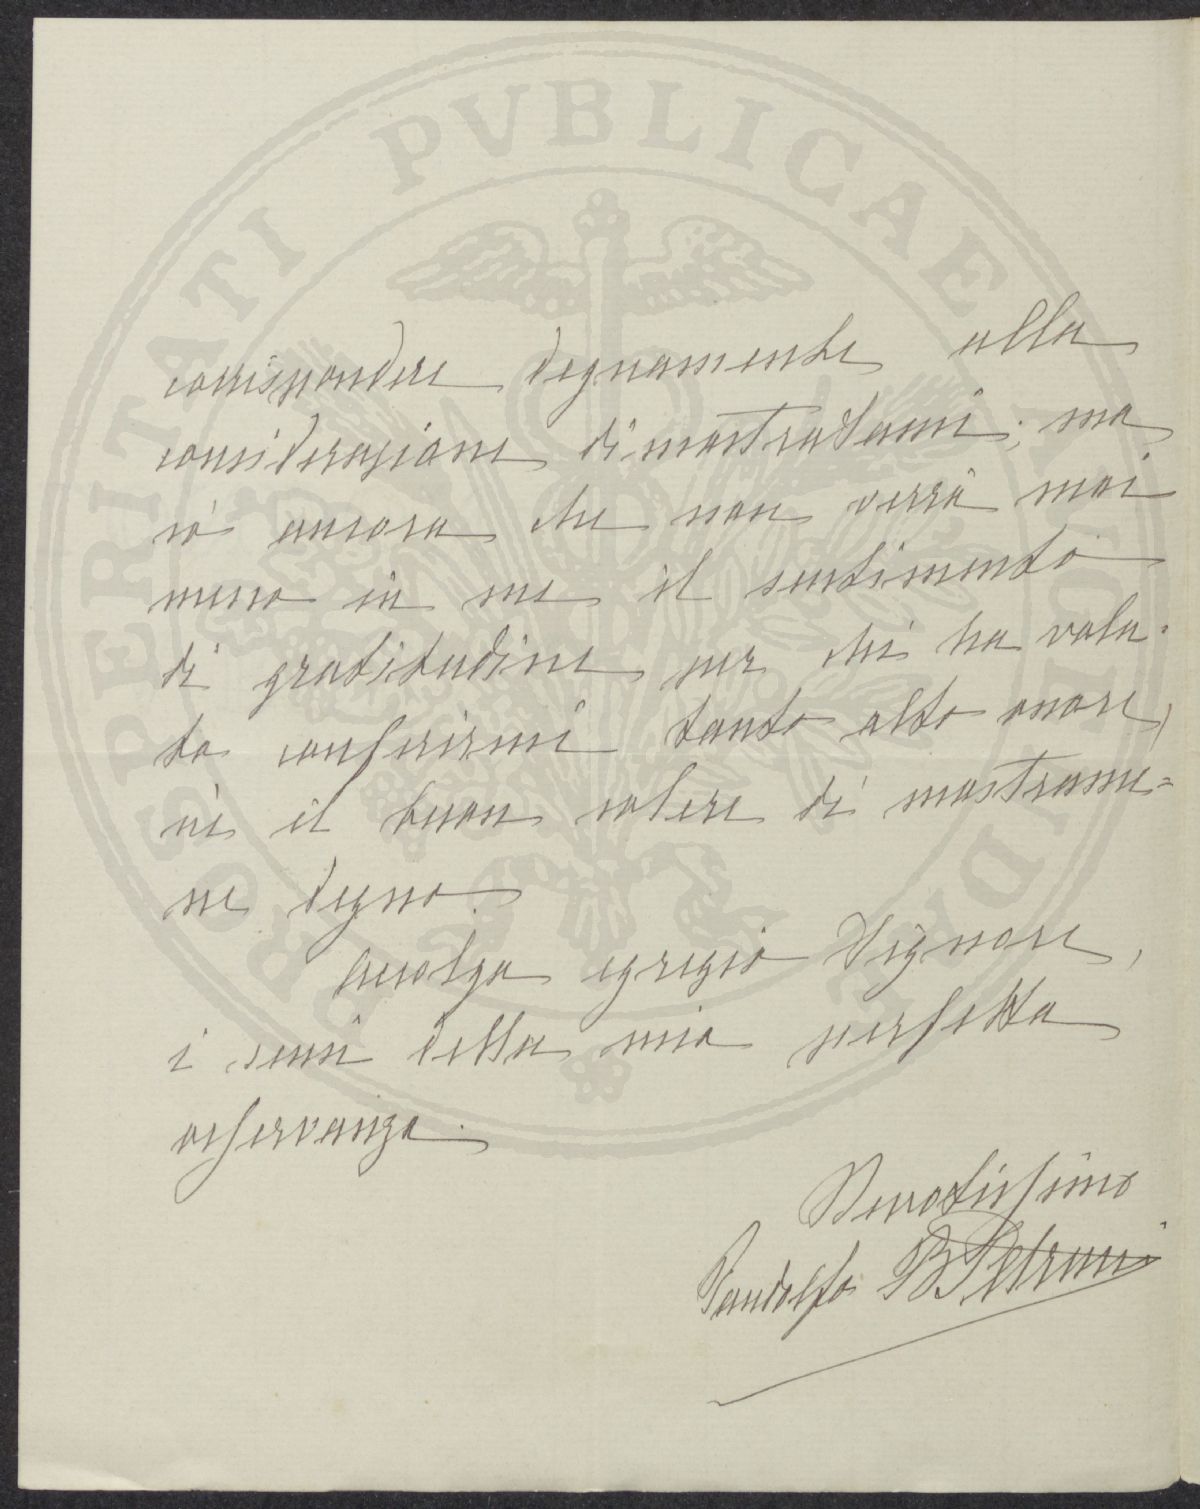 PROSPERITATI PVBLICAE AVGENDAE
corrispondere degnamente alla
considerazione dimostratami; ma
so ancora che non verrà mai
meno in me il sentimento
di gratitudine per chi ha volu-
to conferirmi tanto alto onore,
nè il buon volere di mostrarme=
ne degno.
Accolga egregio Signore,
i sensi della mia perfetta
osservanza.
Devotissimo
Pandolfo B Petroni